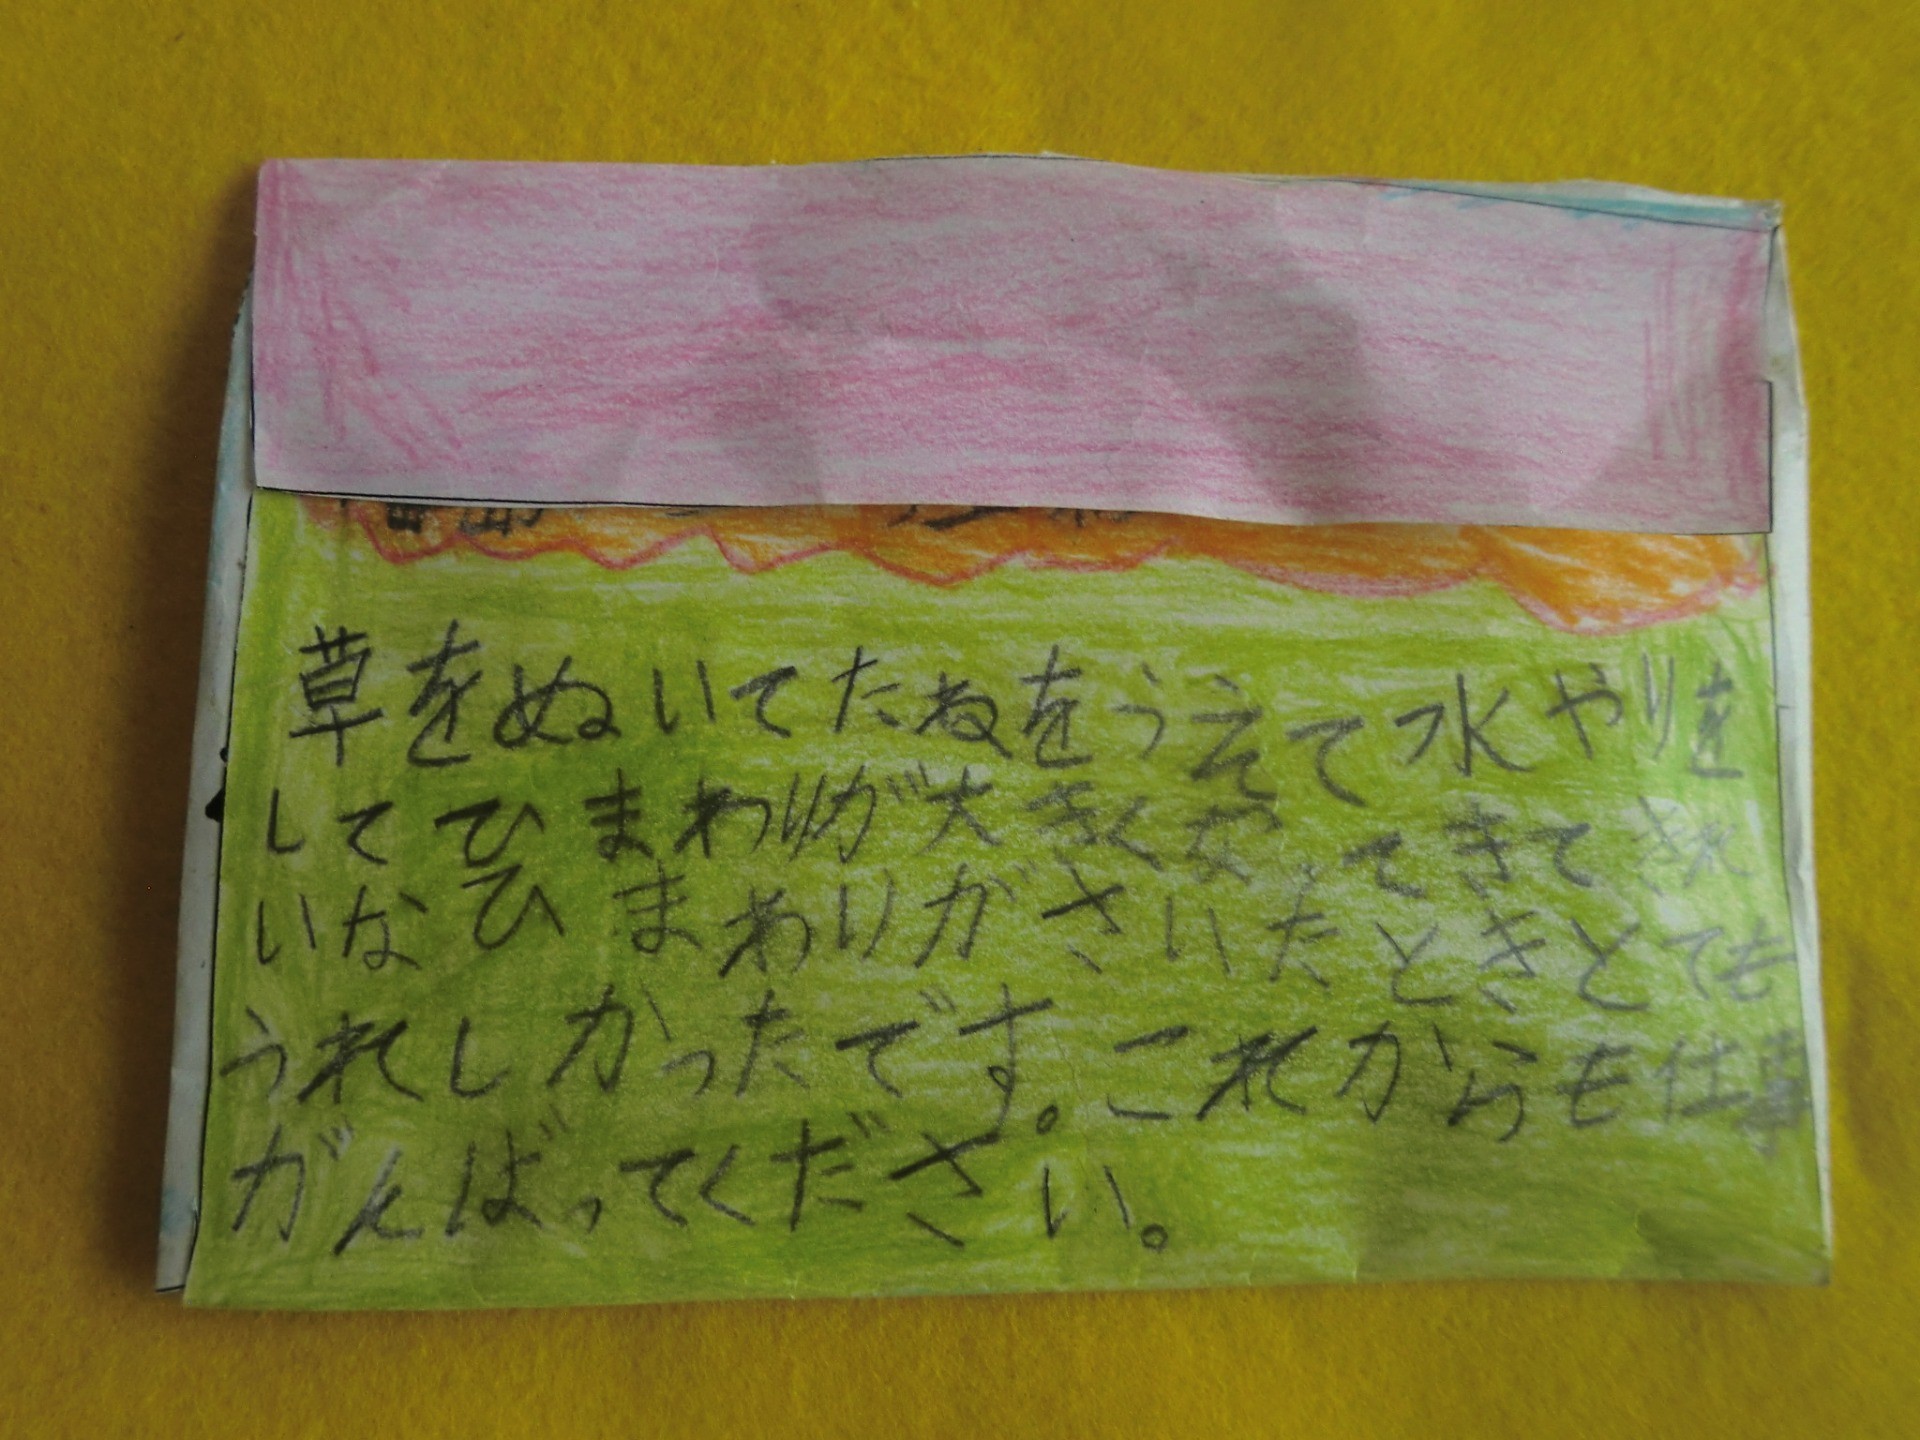 草をぬいてたねをうえて水やりを
してひまわりが大きくなってきてきれ
いなひまわりがさいたときとても
うれしかったです。これからも仕事
がんばってください。